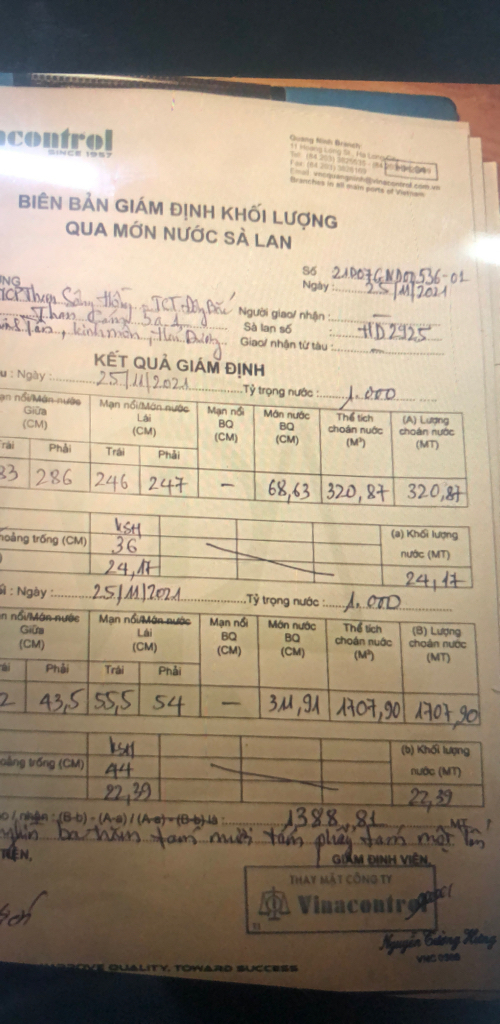 acontrol
SINCE 1957
Quang Ninh Branch:
11 Hoang Long St., Ha Long City
Branches in all main ports of Vietnam
BIÊN BẢN GIÁM ĐỊNH KHỐI LƯỢNG
QUA MỚN NƯỚC SÀ LAN
Số 21D07GND00536-01
Ngày : 25/11/2021
Người giao/ nhận : –
Sà lan số : HD2925
Giao/ nhận từ tàu : –
Kinh môn, Hải Dương
KẾT QUẢ GIÁM ĐỊNH
u : Ngày : 25/11/2021 Tỷ trọng nước : 1.000
ạn nổi/Món nước Giữa (CM) Mạn nổi/Món nước Lái (CM) Mạn nổi BQ (CM) Món nước BQ (CM) Thể tích choán nước (M³) (A) Lượng choán nước (MT)
rái Phải Trái Phải
83 286 246 247 – 68,63 320,87 320,87
hoảng trống (CM) KSH 36 24,17 (a) Khối lượng nước (MT) 24,17
: Ngày : 25/11/2021 Tỷ trọng nước : 1.000
ạn nổi/Món nước Giữa (CM) Mạn nổi/Món nước Lái (CM) Mạn nổi BQ (CM) Món nước BQ (CM) Thể tích choán nước (M³) (B) Lượng choán nước (MT)
ái Phải Trái Phải
2 43,5 55,5 54 – 311,91 1707,90 1707,90
oảng trống (CM) KSH 44 22,39 (b) Khối lượng nước (MT) 22,39
o / nhận : (B-b) - (A-a) / (A-a) - (B-b) là : 1388,81 MT
nghìn ba trăm tám mươi tám phẩy tám một tấn
GIÁM ĐỊNH VIÊN,
THAY MẶT CÔNG TY
Vinacontrol
Nguyễn Cường Hưng
IMPROVE QUALITY, TOWARD SUCCESS